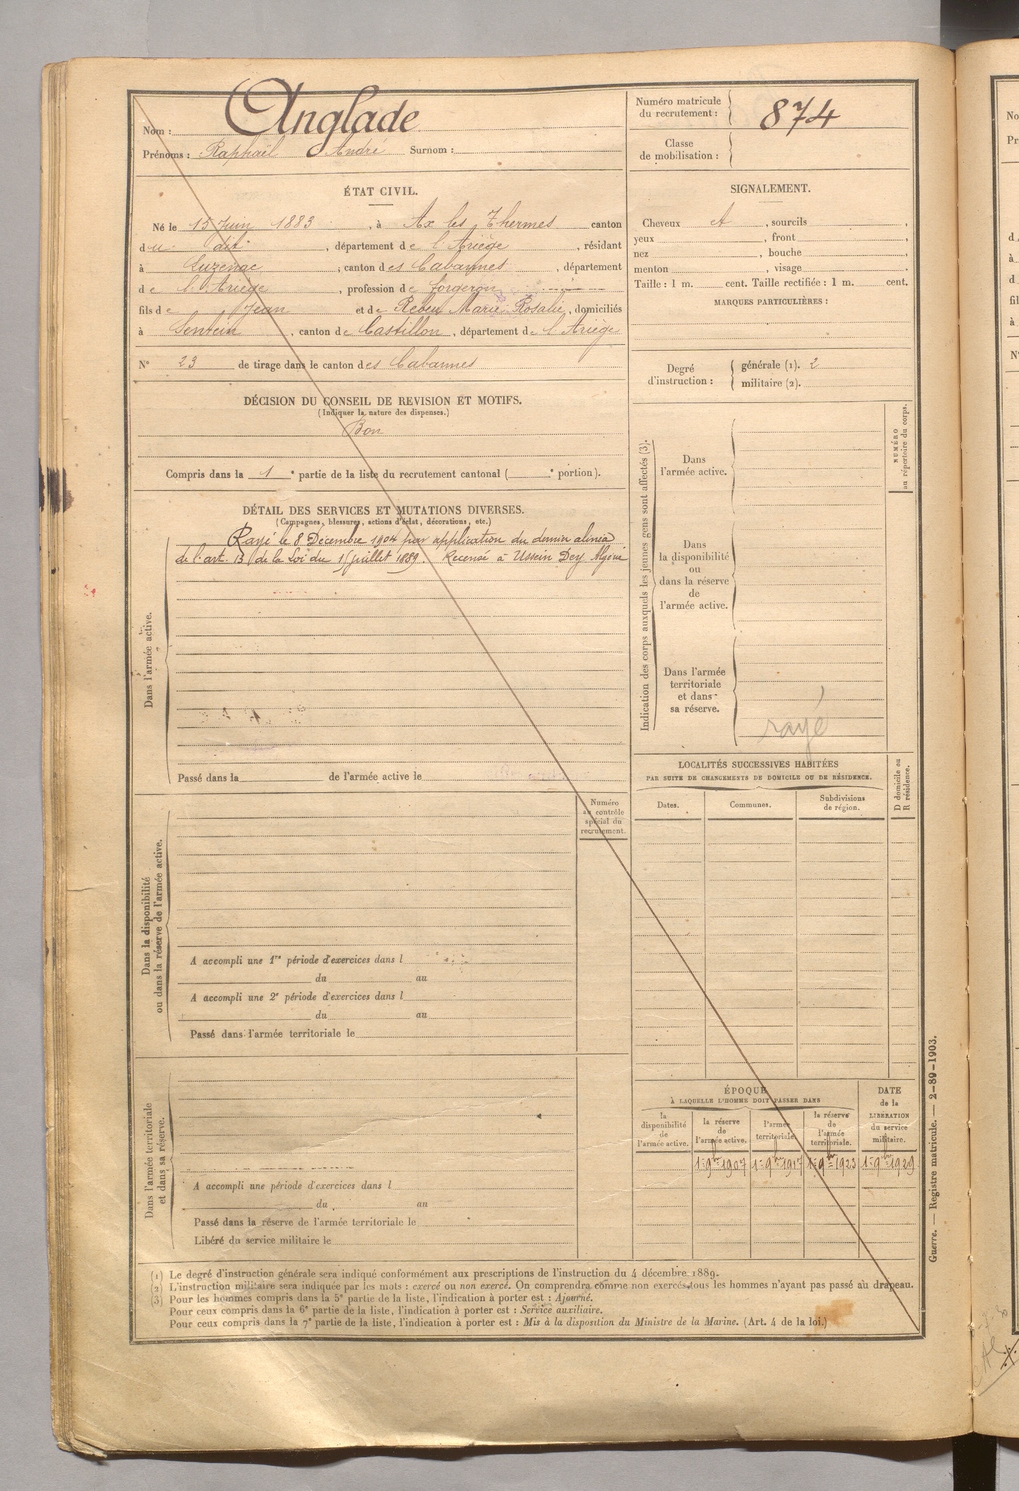 Nom : Anglade
Prénoms : Raphaël André Surnom :
Numéro matricule du recrutement : 874
Classe de mobilisation :
ÉTAT CIVIL.
Né le 15 Juin 1883, à Ax les Thermes canton
du dit, département de l'Ariège, résidant
à Luzenac, canton des Cabannes, département
de l'Ariège, profession de forgeron
fils de Jean et de Marie Rosalie, domiciliés
à Sentein, canton de Castillon, département de l'Ariège
N° 23 de tirage dans le canton des Cabannes
DÉCISION DU CONSEIL DE REVISION ET MOTIFS.
(Indiquer la nature des dispenses.)
Bon
Compris dans la 1e partie de la liste du recrutement cantonal ( e portion).
DÉTAIL DES SERVICES ET MUTATIONS DIVERSES.
(Campagnes, blessures, actions d'éclat, décorations, etc.)
Rayé le 8 Décembre 1904 par application du dernier alinéa
de l'art. 13 de la Loi du 15 juillet 1889. Recensé à Ussein Dey Algérie
Dans l'armée active.
Passé dans la de l'armée active le
Numéro au contrôle spécial du recrutement.
Dans la disponibilité ou dans la réserve de l'armée active.
A accompli une 1re période d'exercices dans l
du au
A accompli une 2e période d'exercices dans l
du au
Passé dans l'armée territoriale le
Dans l'armée territoriale et dans sa réserve.
A accompli une période d'exercices dans l
du au
Passé dans la réserve de l'armée territoriale le
Libéré du service militaire le
SIGNALEMENT.
Cheveux , sourcils ,
yeux , front ,
nez , bouche ,
menton , visage
Taille : 1 m. cent. Taille rectifiée : 1 m. cent.
MARQUES PARTICULIÈRES :
Degré d'instruction : générale (1). 2
militaire (2).
Indication des corps auxquels les jeunes gens sont affectés (3).
NUMÉRO au répertoire du corps.
Dans l'armée active.
Dans la disponibilité ou dans la réserve de l'armée active.
Dans l'armée territoriale et dans sa réserve.
rayé
LOCALITÉS SUCCESSIVES HABITÉES
PAR SUITE DE CHANGEMENTS DE DOMICILE OU DE RÉSIDENCE.
D domicile ou R résidence.
Dates. Communes. Subdivisions de région.
ÉPOQUE
À LAQUELLE L'HOMME DOIT PASSER DANS
DATE de la LIBÉRATION du service militaire.
la disponibilité de l'armée active. la réserve de l'armée active. l'armée territoriale. la réserve de l'armée territoriale.
1er 9bre 1907 1er 9bre 1917 1er 9bre 1923 1er 9bre 1929
(1) Le degré d'instruction générale sera indiqué conformément aux prescriptions de l'instruction du 4 décembre 1889.
(2) L'instruction militaire sera indiquée par les mots : exercé ou non exercé. On comprendra comme non exercés tous les hommes n'ayant pas passé au drapeau.
(3) Pour les hommes compris dans la 5e partie de la liste, l'indication à porter est : Ajourné.
Pour ceux compris dans la 6e partie de la liste, l'indication à porter est : Service auxiliaire.
Pour ceux compris dans la 7e partie de la liste, l'indication à porter est : Mis à la disposition du Ministre de la Marine. (Art. 4 de la loi.)
Guerre. — Registre matricule. — 2-89-1903.